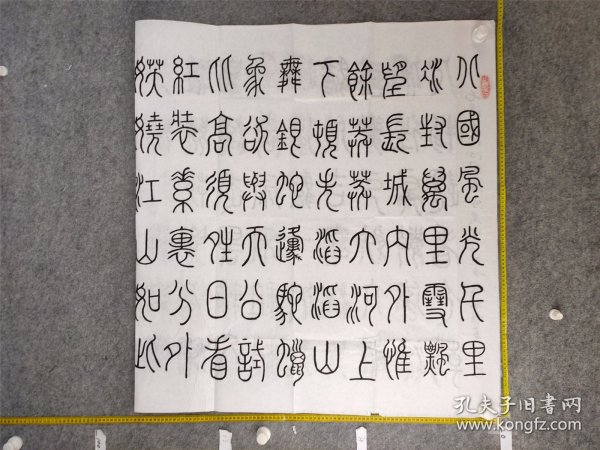 北國風光千里
冰封萬里雪飄
望長城內外惟
餘莽莽大河上
下頓失滔滔山
舞銀蛇原馳蠟
象欲與天公試
比高須晴日看
紅裝素裹分外
妖嬈江山如此
孔夫子旧書网
www.kongfz.com